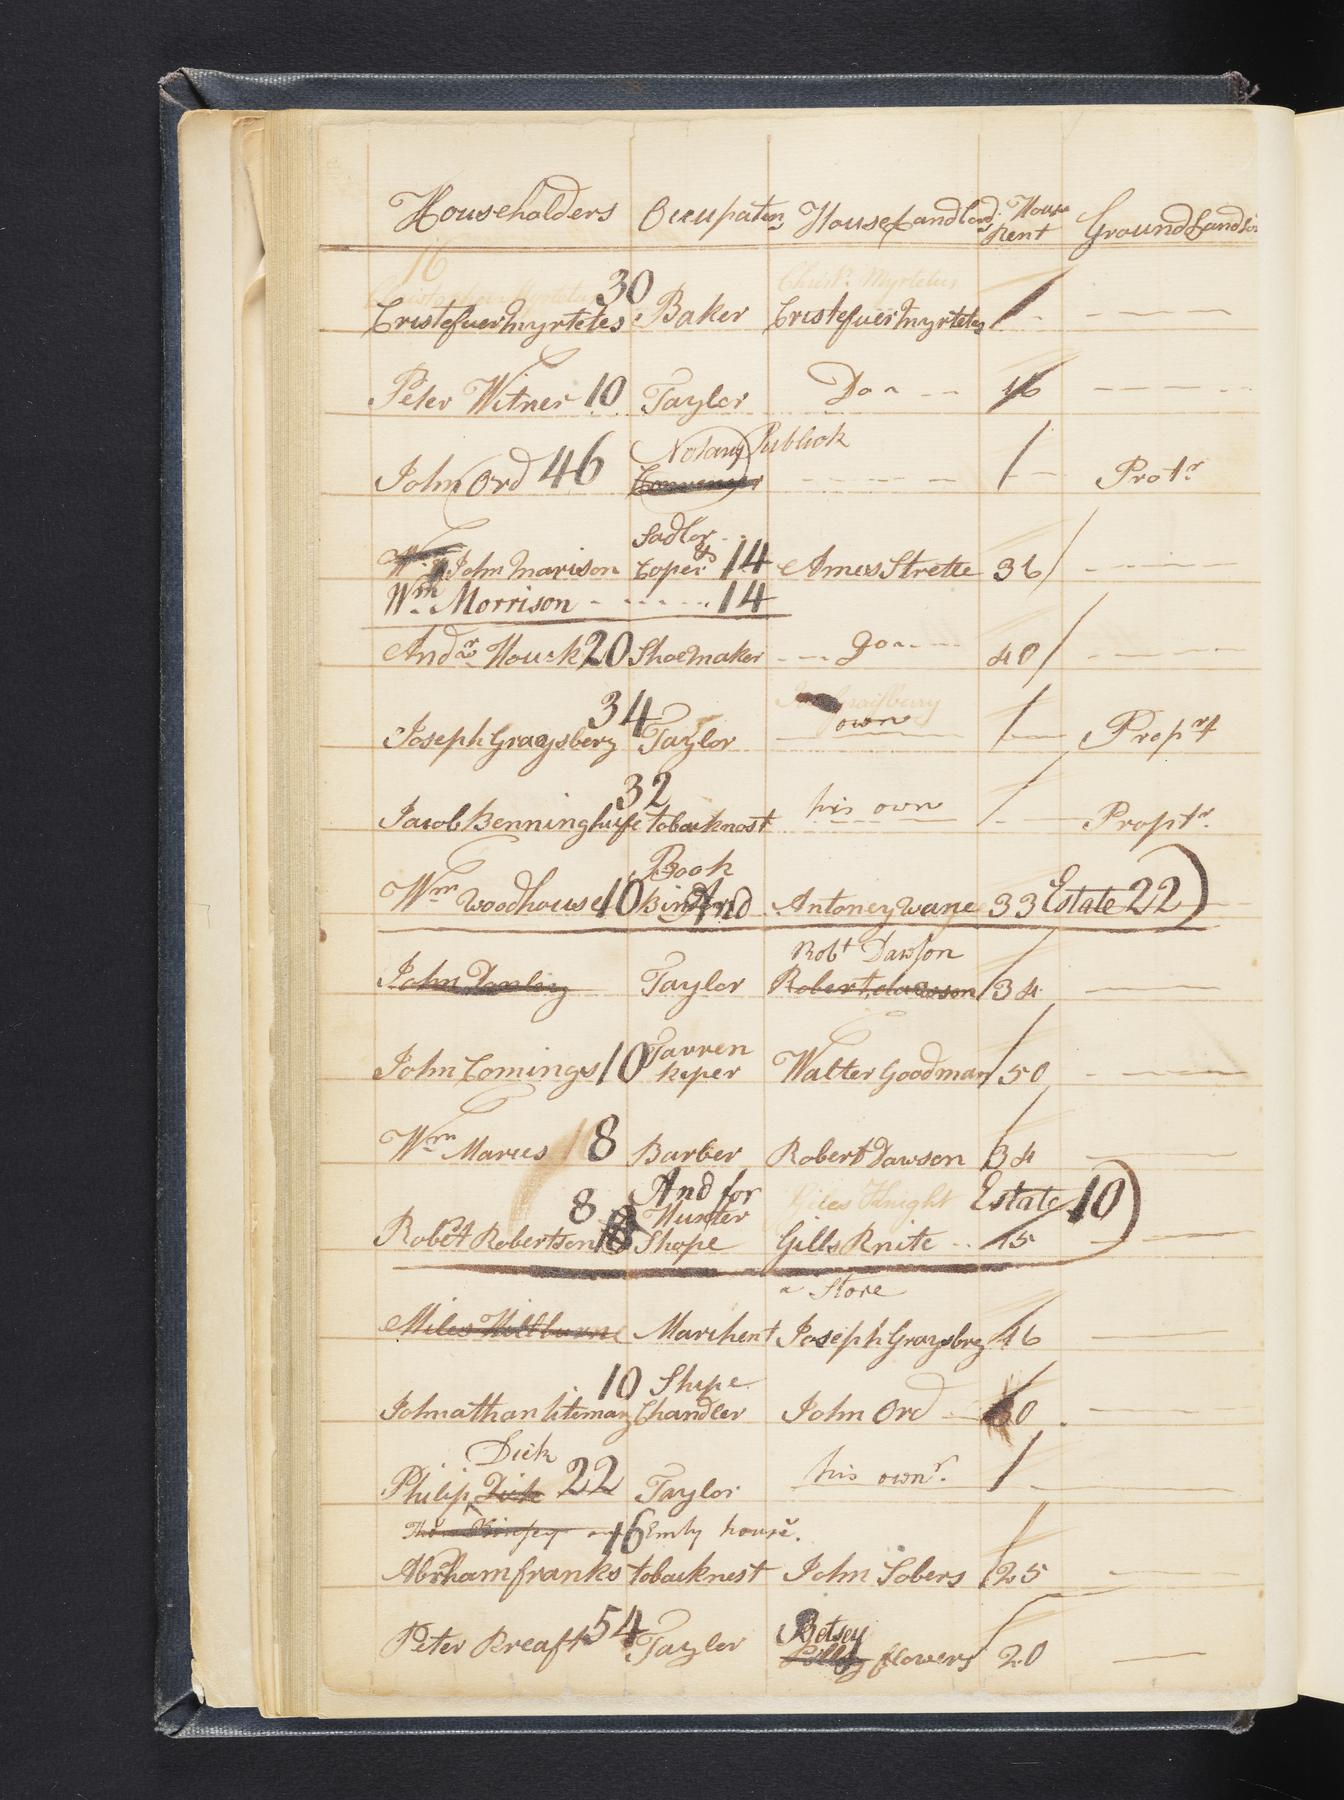 Householders Occupatn House Landlord House Rent Ground Landlo
16
30 Christr. Myrtetus
Cristefuer Myrteles Baker Cristefuer Myrteles
Peter Witner 10 Taylor Do 16
Notary Publick
John Ord 46 Protr
Sadlor
John Marison & Coper 14 Ames Strette 36
Wm Morrison 14
Andw Houck 20 Shoemaker Do 40
34
Joseph Graysbery Taylor own Proprt
32
Jacob Benninghufe tobacknost his own Proptr
Book
Wm Woodhouse 10 Binder And Antoney wane 33 Estate 22
Robt Dawson
John Taylor Robert dawson 34
Tavren
John Comings 10 keper Walter Goodman 50
Wm Marus 8 Barber Robert Dawson 34
And for Giles Knight Estate 10
8 Hunter
Robert Robertson Shope Gills Knite 15
a Store
Miles Hillburne Marchent Joseph Graysbrey 46
10 Shipe
Johnathan liteman Chandler John Ord 60
Dick
Philip Dick 22 Taylor his ownr
16 Emty house.
Abrham franks tobacknest John Sobers 25
Betsey
Peter Kreaft 54 Taylor flowers 20